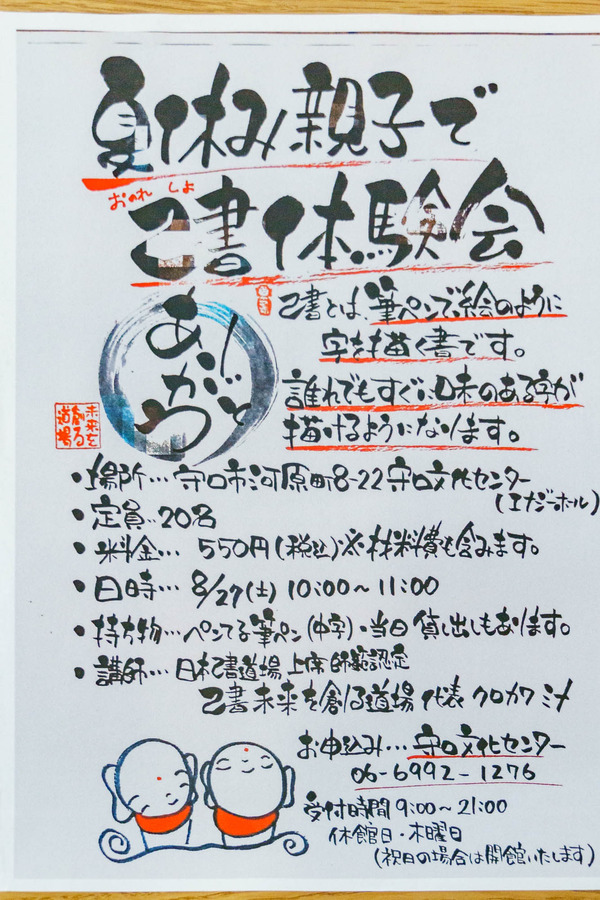 夏休み親子で
おのれ しょ
己書体験会
ありがとう
己書とは、筆ペンで、絵のように
字を描く書です。
誰でもすぐに味のある字が
描けるようになります。
未来を
創る
道場
・場所…守口市河原町8-22 守口文化センター
(エナジーホール)
・定員…20名
・料金… 550円(税込)※材料費も含みます。
・日時… 8/27(土) 10:00〜11:00
・持ち物…ぺんてる筆ペン(中字)・当日貸し出しもあります。
・講師… 日本己書道場 上席師範認定
己書未来を創る道場 代表 クロカワ ミナ
お申込み…守口文化センター
06-6992-1276
受付時間 9:00〜21:00
休館日・木曜日
(祝日の場合は開館いたします)